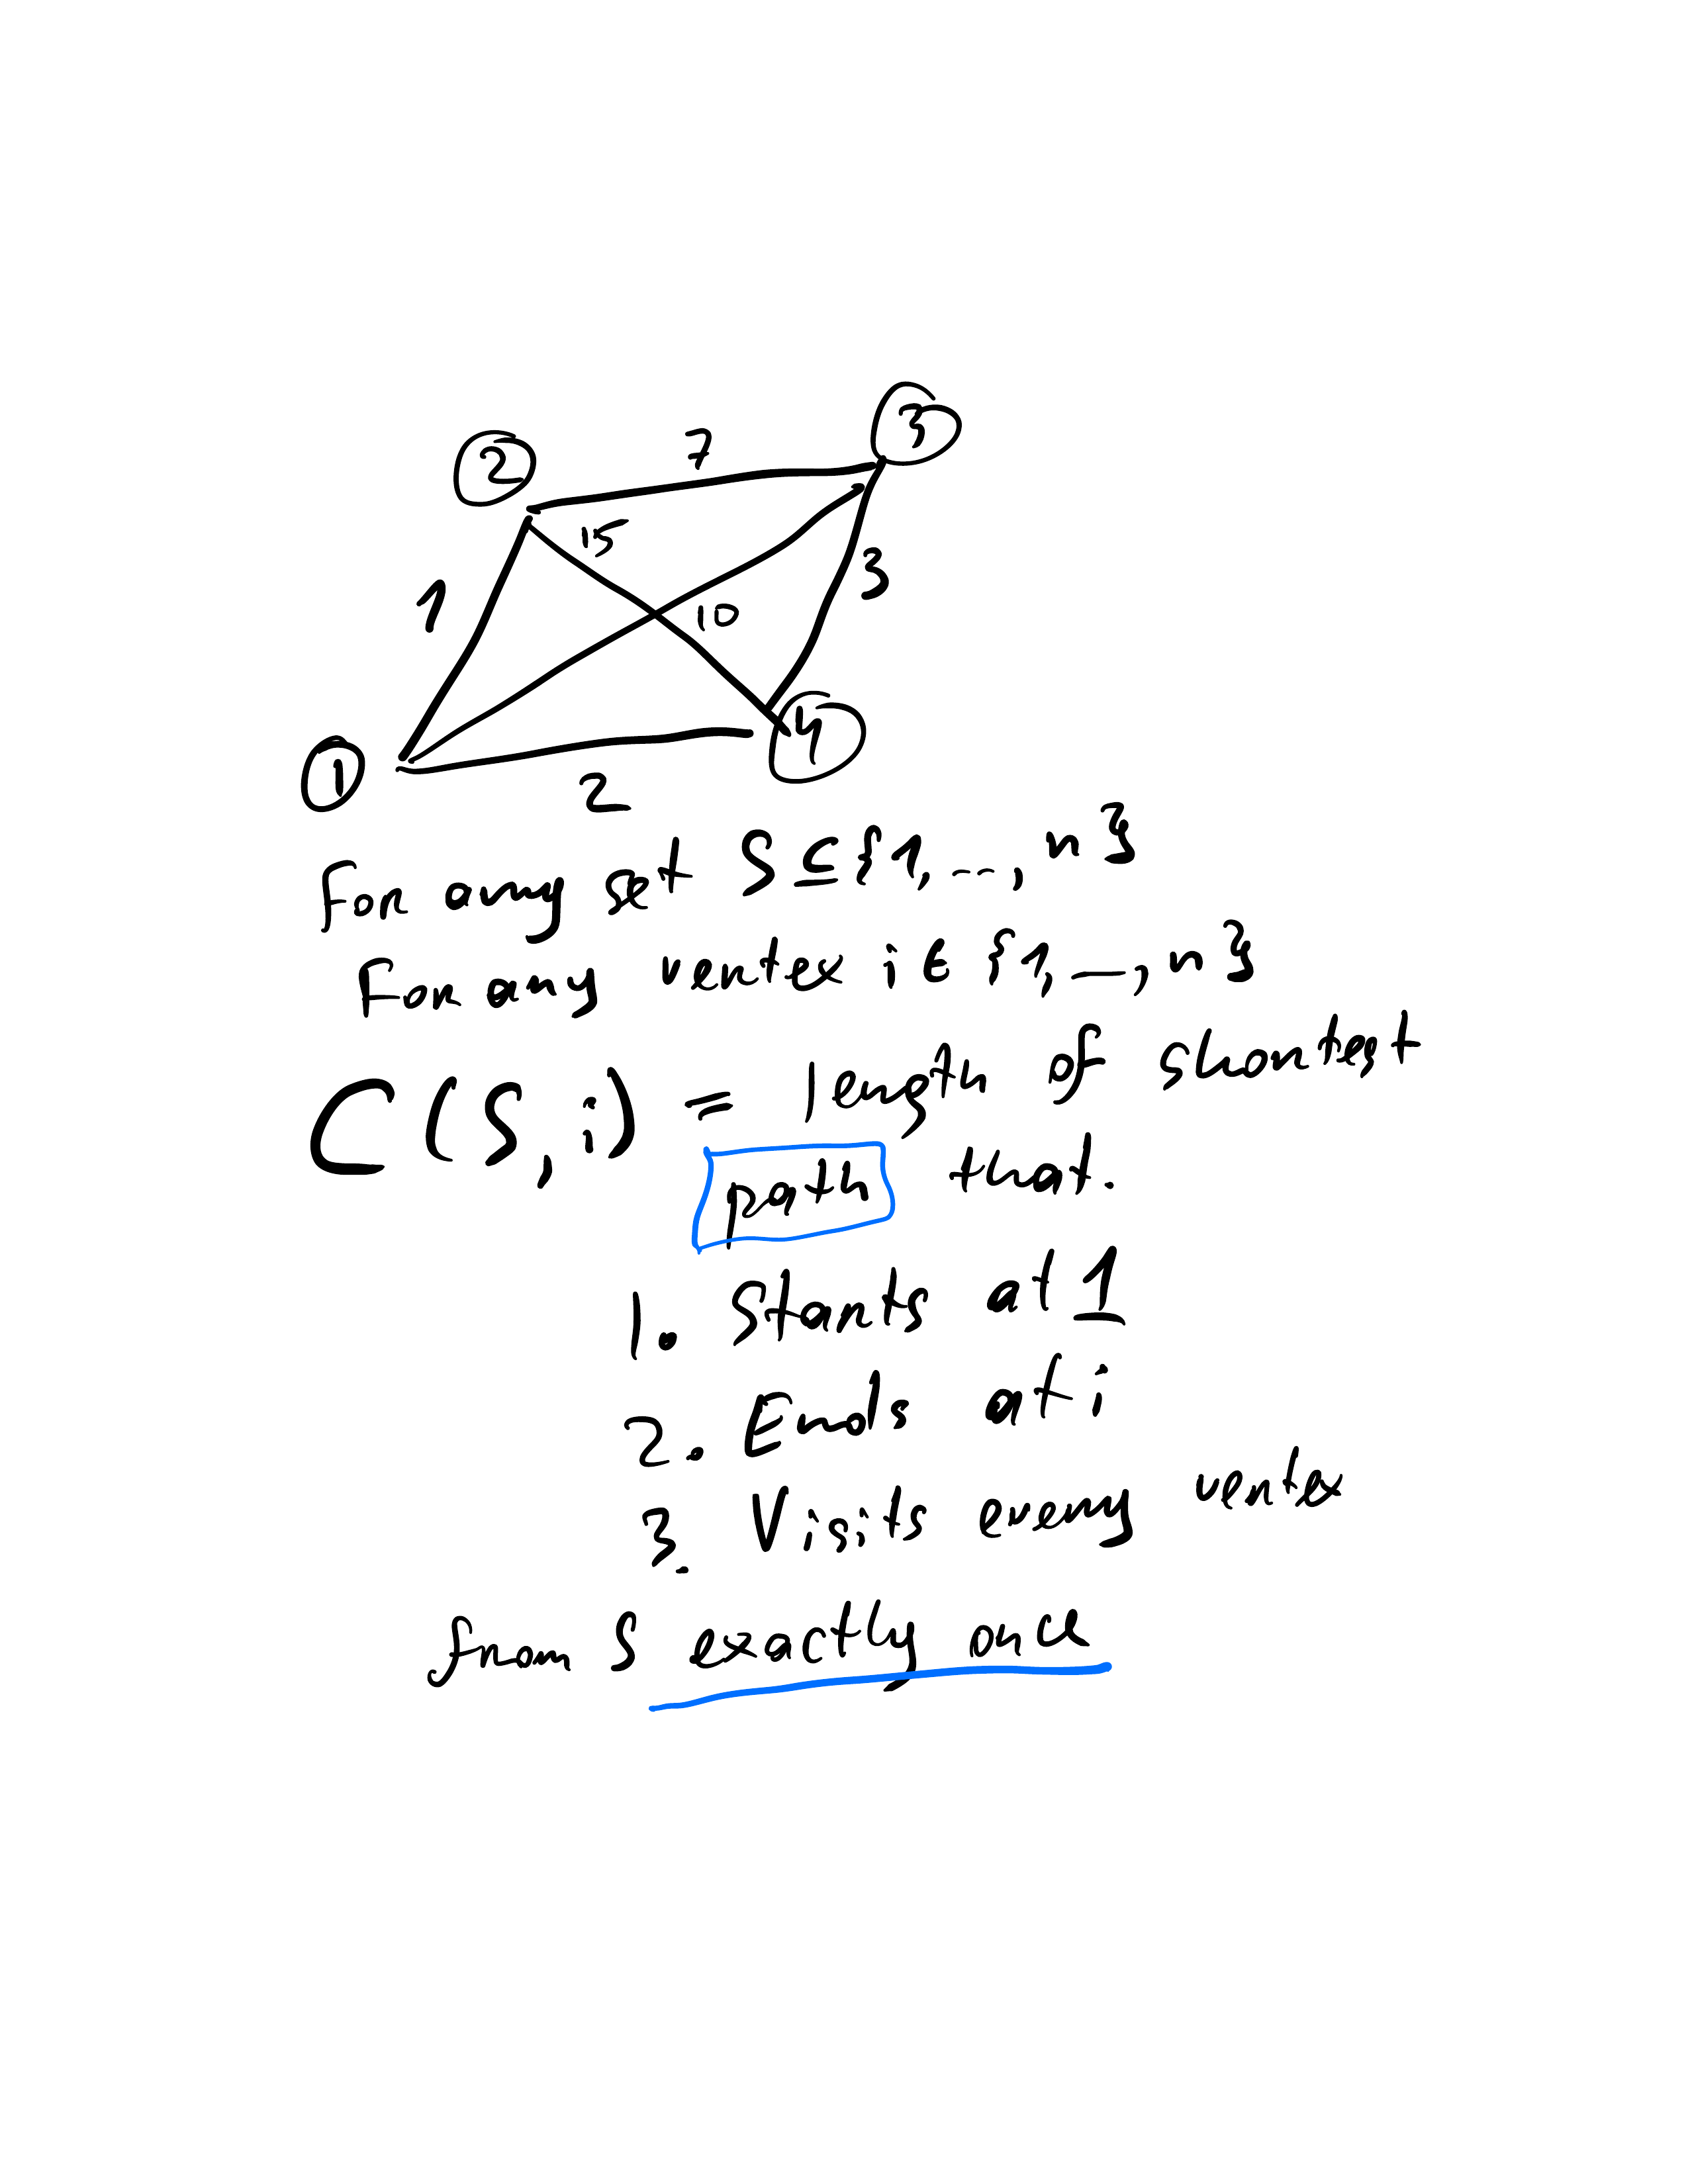 3
7
2
15
3
1
10
4
1
2
For any set S ⊆ {1, --, n}
For any vertex i ∈ {1, —, n}
C(S, i) = length of shortest
path that.
1. Starts at 1
2. Ends at i
3. Visits every vertex
from S exactly once